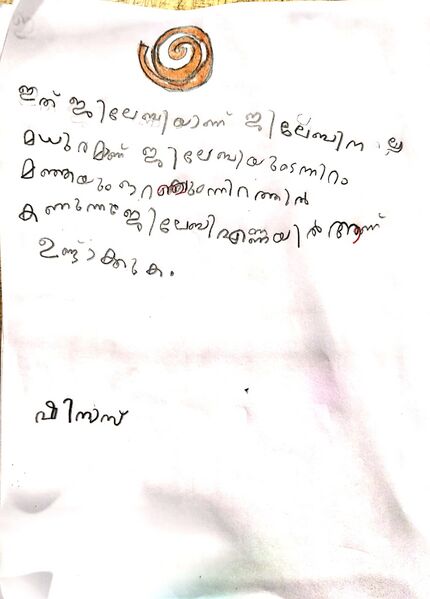 ഇത് ജിലേബിയാണ് ജിലേബിന ല്ല
മധുരമാണ് ജിലേബിയുടെനിറം
മഞ്ഞയുംഓറഞ്ചുംനിറത്തിൽ
കണുന്നജിലേബിഎണ്ണയിൽആണ്
ഉണ്ടാക്കുക.